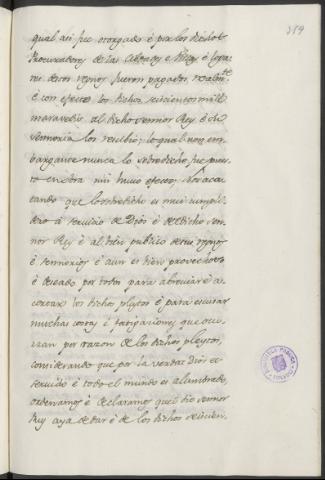 319
qual asi fue otorgado é por los dichos
Procuradores de las Cibdades e Villas é Logares
de sus regnos fueron pagados realmte
é con efecto los dichos seiscientos mill
maravedis al dicho sennor Rey é
sennoria los rescibio; lo qual non em-
bargante nunca lo sobredicho fue pues-
to en obra nin huvo efecto; Nos aca-
tando que lo sobredicho es mui cumpli-
dero á servicio de Dios é de dicho sen-
nor Rey é al bien publico de sus regnos
é sennorios é aun es bien provechoso
é deseado por todos para abreviar é a-
cortar los dichos pleytos é para escusar
muchas costas é fatigaciones que ocu-
rran por razon de los dichos pleytos,
considerando que por la verdat Dios es
servido é todo el mundo es alumbrado,
ordenamos é declaramos quel dho sennor
Rey aya de dar é de los dichos seiscien-
BIBLIOTECA PUBLICA
TOLEDO